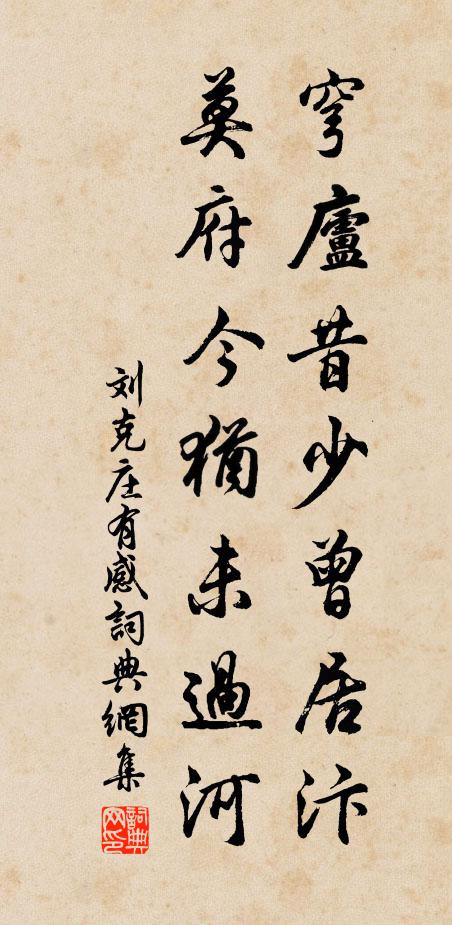 穹廬昔少曾居汴
莫府今猶未過河
刘克庄有感詞典網集
詞典网印